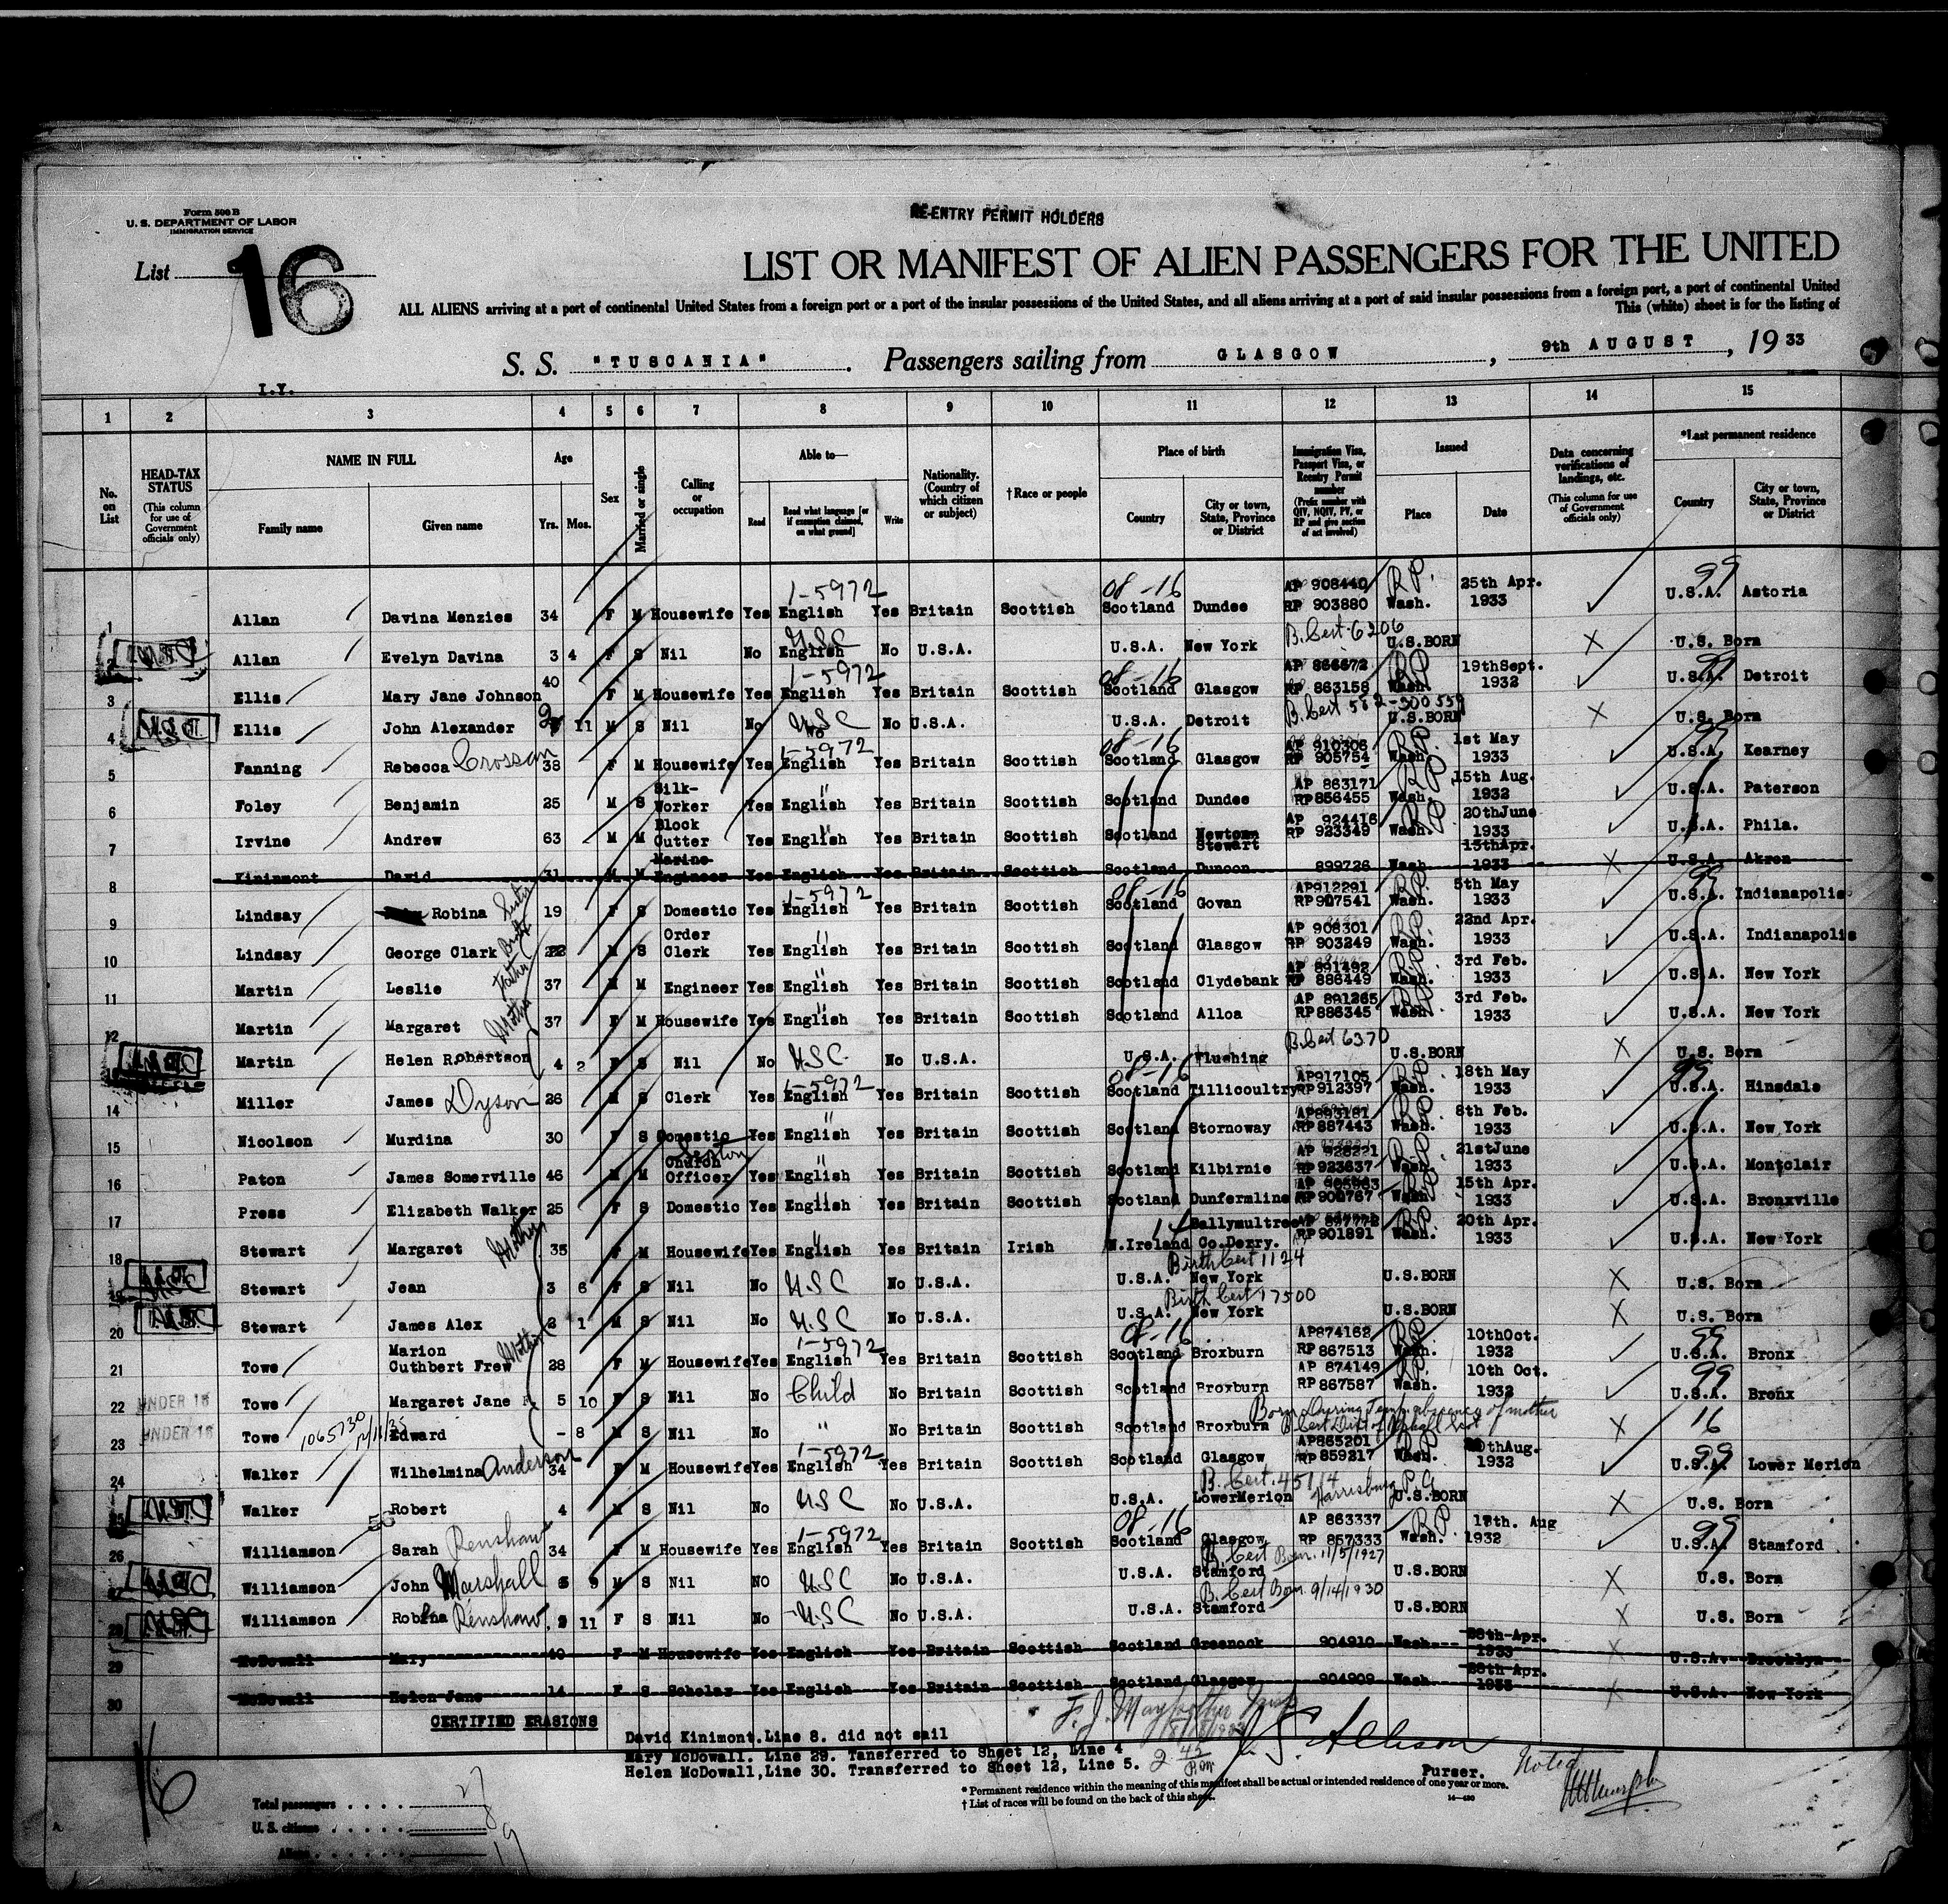 Form 500 B
U. S. DEPARTMENT OF LABOR
IMMIGRATION SERVICE
RE-ENTRY PERMIT HOLDERS
List 16
LIST OR MANIFEST OF ALIEN PASSENGERS FOR THE UNITED
ALL ALIENS arriving at a port of continental United States from a foreign port or a port of the insular possessions of the United States, and all aliens arriving at a port of said insular possessions from a foreign port, a port of continental United
This (white) sheet is for the listing of
S. S. "TUSCANIA". Passengers sailing from GLASGOW, 9th AUGUST, 19 33
I.Y.
1 2 3 4 5 6 7 8 9 10 11 12 13 14 15
No. on List
HEAD-TAX STATUS (This column for use of Government officials only)
NAME IN FULL
Family name Given name
Age Yrs. Mos.
Sex
Married or single
Calling or occupation
Able to— Read Read what language [or if exemption claimed, on what ground] Write
Nationality. (Country of which citizen or subject)
† Race or people
Place of birth Country City or town, State, Province or District
Immigration Visa, Passport Visa, or Reentry Permit number (Prefix number with QIV, NQIV, PV, or RP and give section of act involved)
Issued Place Date
Data concerning verifications of landings, etc. (This column for use of Government officials only)
*Last permanent residence Country City or town, State, Province or District
1 Allan Davina Menzies 34 F M Housewife Yes 1-5972 English Yes Britain Scottish 08-16 Scotland Dundee AP 908440 RP 903880 R.P. Wash. 25th Apr. 1933 99 U.S.A. Astoria
2 Allan Evelyn Davina 3 4 F S Nil No USC English No U.S.A. U.S.A. New York B. Cert. 6206 U.S.BORN X U.S. Born
3 Ellis Mary Jane Johnson 40 F M Housewife Yes 1-5972 English Yes Britain Scottish 08-16 Scotland Glasgow AP 866672 RP 863158 RP Wash. 19thSept. 1932 99 U.S.A. Detroit
4 Ellis John Alexander 11 M S Nil No USC No U.S.A. U.S.A. Detroit B. Cert U.S.BORN X U.S. Born
5 Fanning Rebecca Crossan 38 F M Housewife Yes 1-5972 English Yes Britain Scottish 08-16 Scotland Glasgow AP 910306 RP 905754 R.P. Wash. 1st May 1933 99 U.S.A. Kearney
6 Foley Benjamin 25 M S Silk-Worker Yes English " Yes Britain Scottish Scotland Dundee AP 863171 RP856455 RP Wash. 15th Aug. 1932 U.S.A. Paterson
7 Irvine Andrew 63 M M Block Cutter Yes English " Yes Britain Scottish Scotland Newtown Stewart AP 924416 RP 923349 RP Wash. 20thJune 1933 U.S.A. Phila.
8 Kinimont David 31 M M Marine Engineer Yes English Yes Britain Scottish Scotland Dunoon 899726 Wash 15thApr. 1933 X U.S.A. Akron
9 Lindsay Robina Sister 19 F S Domestic Yes 1-5972 English Yes Britain Scottish 08-16 Scotland Govan AP912291 RP907541 R.P. Wash. 5th May 1933 99 U.S.A. Indianapolis
10 Lindsay George Clark 22 M S Order Clerk Yes English " Yes Britain Scottish Scotland Glasgow AP 908301 RP 903249 R.P. Wash. 22nd Apr. 1933 U.S.A. Indianapolis
11 Martin Leslie Father 37 M M Engineer Yes English " Yes Britain Scottish Scotland Clydebank AP 891492 RP 886449 R.P. Wash. 3rd Feb. 1933 U.S.A. New York
12 Martin Margaret Mother 37 F M Housewife Yes English " Yes Britain Scottish Scotland Alloa AP 891265 RP886345 RP Wash. 3rd Feb. 1933 U.S.A. New York
Martin Helen Robertson 4 2 F S Nil No U.S.C. No U.S.A. U.S.A. Flushing B. Cert 6370 U.S.BORN X U.S. Born
14 Miller James Dyson 26 M S Clerk Yes 1-5972 English Yes Britain Scottish 08-16 Scotland Tillicoultry AP917105 RP912397 R.P. Wash. 18th May 1933 99 U.S.A. Hinsdale
15 Nicolson Murdina 30 F S Domestic Yes English " Yes Britain Scottish Scotland Stornoway RP 887443 R.P. Wash. 8th Feb. 1933 U.S.A. New York
16 Paton James Somerville 46 M M Church Officer Sexton Yes English " Yes Britain Scottish Scotland Kilbirnie AP 928221 RP923637 RP Wash. 21stJune 1933 U.S.A. Montclair
17 Press Elizabeth Walker 25 F S Domestic Yes English " Yes Britain Scottish Scotland Dunfermline RP900767 R.P. Wash 15th Apr. 1933 U.S.A. Bronxville
18 Stewart Margaret Mother 35 F M Housewife Yes English " Yes Britain Irish 14 N.Ireland Ballymultree Co.Derry. RP901891 R.P. Wash. 20th Apr. 1933 U.S.A. New York
19 Stewart Jean 3 6 F S Nil No U.S.C No U.S.A. U.S.A. New York Birth Cert 1124 U.S.BORN X U.S. Born
20 Stewart James Alex 2 1 M S Nil No U.S.C No U.S.A. U.S.A. New York Birth Cert 17500 U.S.BORN X U.S. Born
21 Towe Marion Cuthbert Frew Mother 28 F M Housewife Yes 1-5972 English Yes Britain Scottish 08-16 Scotland Broxburn AP874162 RP867513 R.P. Wash. 10thOct. 1932 99 U.S.A. Bronx
22 UNDER 16 Towe Margaret Jane 5 10 F S Nil No Child No Britain Scottish Scotland Broxburn AP 874149 RP867587 R.P. Wash. 10th Oct. 1932 99 U.S.A. Bronx
23 UNDER 16 Towe Edward - 8 M S Nil No " No Britain Scottish Scotland Broxburn Born during Temp. absence of mother X 16
24 Walker Wilhelmina Anderson 34 F M Housewife Yes 1-5972 English Yes Britain Scottish Scotland Glasgow AP865201 RP 859217 R.P. Wash. Aug. 1932 99 U.S.A. Lower Merion
25 Walker Robert 4 M S Nil No U.S.C No U.S.A. U.S.A. LowerMerion B. Cert. 45114 Harrisburg P.A U.S.BORN X U.S. Born
26 Williamson Sarah Renshaw 34 F M Housewife Yes 1-5972 English Yes Britain Scottish 08-16 Scotland Glasgow AP 863337 RP 857333 R.P. Wash. Aug 1932 99 U.S.A. Stamford
27 Williamson John Marshall 5 9 M S Nil NO U.S.C No U.S.A. U.S.A. Stamford B. Cert Born 11/5/1927 U.S.BORN X U.S. Born
28 Williamson Robina Renshaw. 2 11 F S Nil No U.S.C No U.S.A. U.S.A. Stamford B. Cert Born 9/14/1930 U.S.BORN X U.S. Born
29 McDowall Mary 40 F M Housewife Yes English Yes Britain Scottish Scotland Greenock 904910 Wash 28th Apr. 1933 X U.S.A. Brooklyn
30 McDowall Helen Jane 14 F S Scholar Yes English Yes Britain Scottish Scotland Glasgow 904909 Wash 28th Apr. 1933 X U.S.A. New York
CERTIFIED ERASIONS
David Kinimont.Line 8. did not sail
Mary McDowall. Line 29. Tansferred to Sheet 12, Line 4
Helen McDowall,Line 30. Transferred to Sheet 12, Line 5.
2 45 P.M
J. S. Allison
Purser.
Noted
* Permanent residence within the meaning of this manifest shall be actual or intended residence of one year or more.
† List of races will be found on the back of this sheet.
14—490
16
Total passengers 27
U. S. citizens 8
Aliens 19